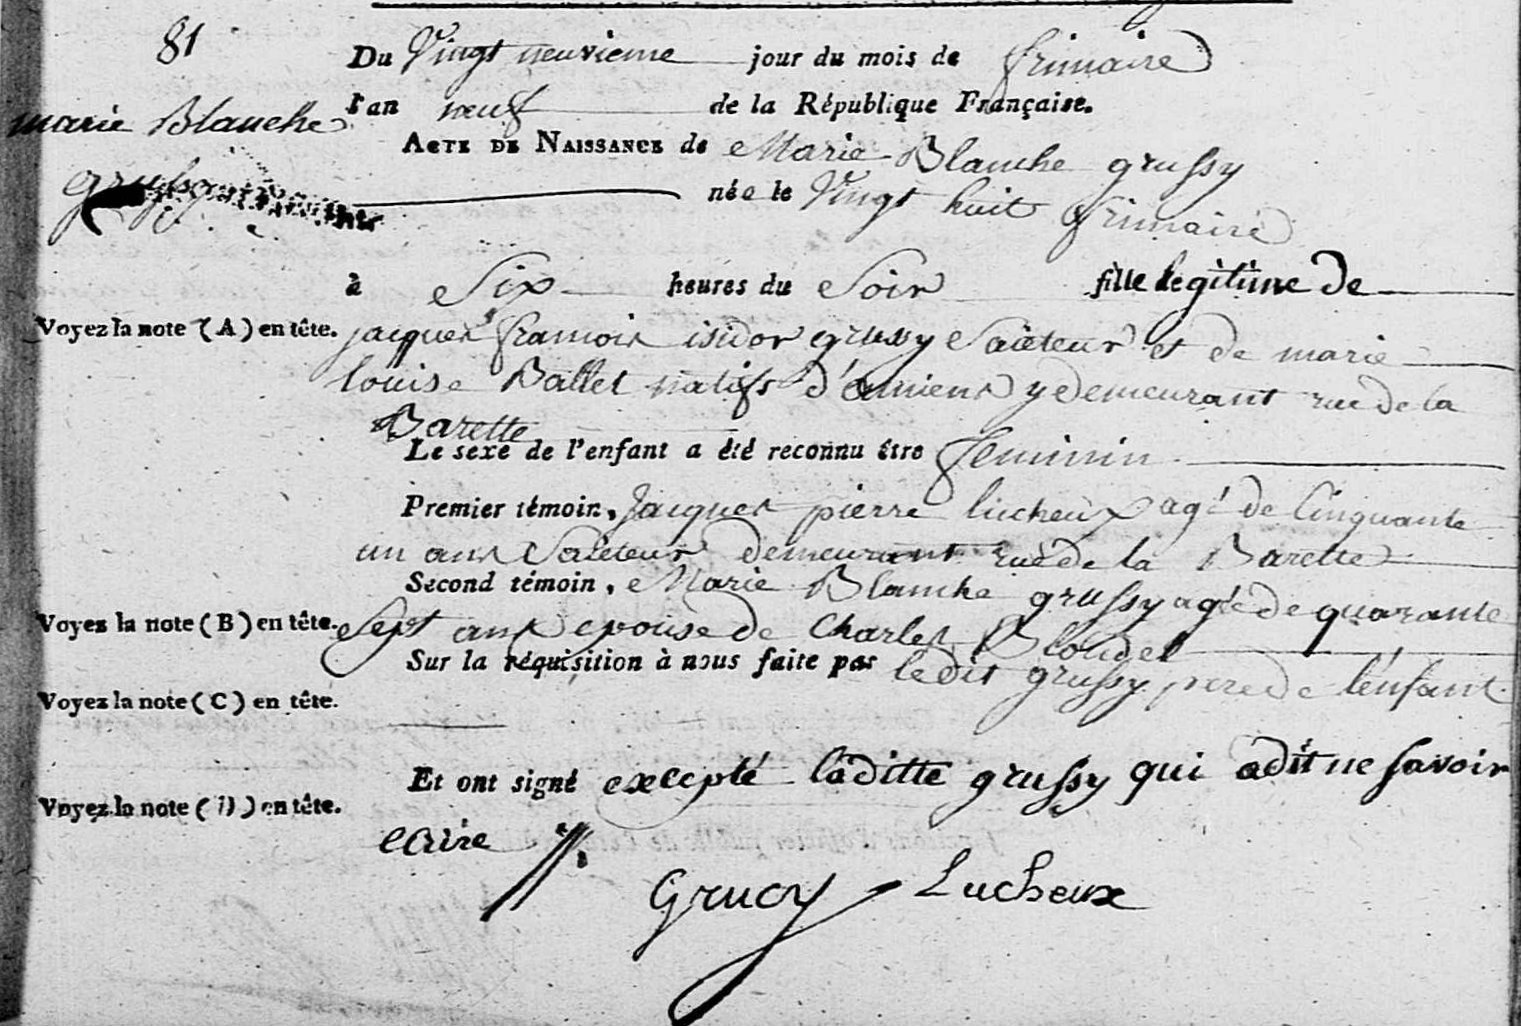 81
Du Vingt neuvieme jour du mois de frimaire
marie Blanche
l'an neuf de la République Française.
Acte de Naissance de Marie Blanche grussy
grussy
née le Vingt huit frimaire
à Six heures du Soir fille legitime de
Voyez la note (A) en tête.
jacques francois isidor grussy Saieteur et de marie
louise Ballet natifs d'amiens y demeurant rue de la
Barette
Le sexe de l'enfant a été reconnu être feminin
Premier témoin, Jacques pierre lucheux agé de Cinquante
un ans Saieteur demeurant rue de la Barette
Second témoin, Marie Blanche grussy agée de quarante
Voyez la note (B) en tête.
Sept ans epouse de Charles Blondel
Sur la réquisition à nous faite par ledit grussy pere de l'enfant
Voyez la note (C) en tête.
Et ont signé excepté laditte grussy qui a dit ne savoir
Voyez la note (D) en tête.
ecrire
Grucy Lucheux